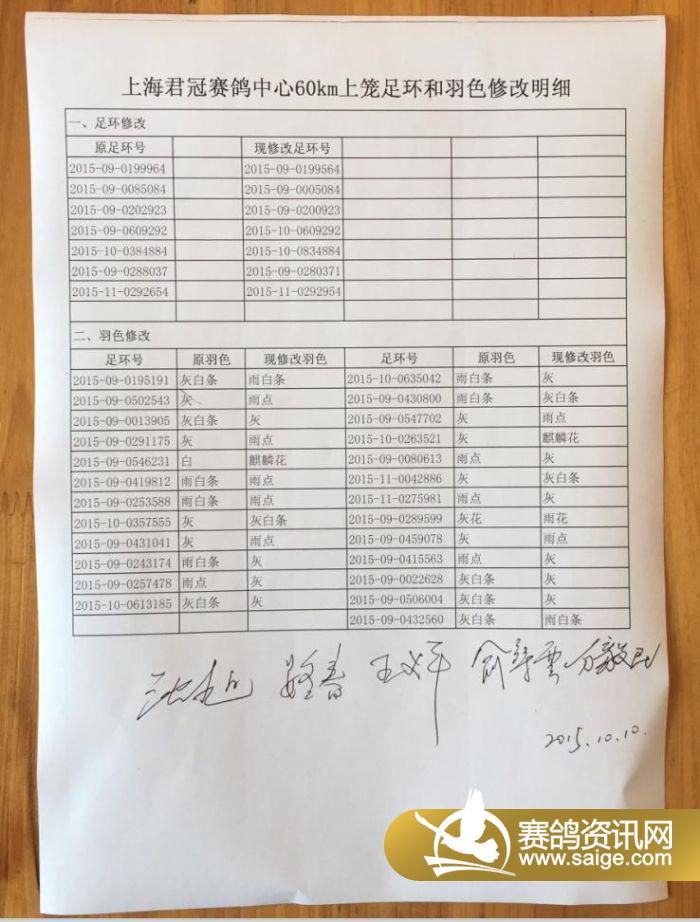 上海君冠赛鸽中心60km上笼足环和羽色修改明细
一、足环修改
原足环号 现修改足环号
2015-09-0199964 2015-09-0199564
2015-09-0085084 2015-09-0005084
2015-09-0202923 2015-09-0200923
2015-09-0609292 2015-10-0609292
2015-10-0384884 2015-10-0834884
2015-09-0288037 2015-09-0280371
2015-11-0292654 2015-11-0292954
二、羽色修改
足环号 原羽色 现修改羽色 足环号 原羽色 现修改羽色
2015-09-0195191 灰白条 雨白条 2015-10-0635042 雨白条 灰
2015-09-0502543 灰 雨点 2015-09-0430800 雨白条 灰白条
2015-09-0013905 灰白条 灰 2015-09-0547702 灰 雨点
2015-09-0291175 灰 雨点 2015-10-0263521 灰 麒麟花
2015-09-0546231 白 麒麟花 2015-09-0080613 雨点 灰
2015-09-0419812 雨白条 雨点 2015-11-0042886 灰 灰白条
2015-09-0253588 雨白条 雨点 2015-11-0275981 雨点 灰
2015-10-0357555 灰 灰白条 2015-09-0289599 灰花 雨花
2015-09-0431041 灰 雨点 2015-09-0459078 灰 雨点
2015-09-0243174 雨白条 灰 2015-09-0415563 雨点 灰
2015-09-0257478 雨点 灰 2015-09-0022628 灰白条 灰
2015-10-0613185 灰白条 灰 2015-09-0506004 灰白条 灰
2015-09-0432560 灰白条 雨白条
2015.10.10.
赛鸽资讯网
www.saige.com